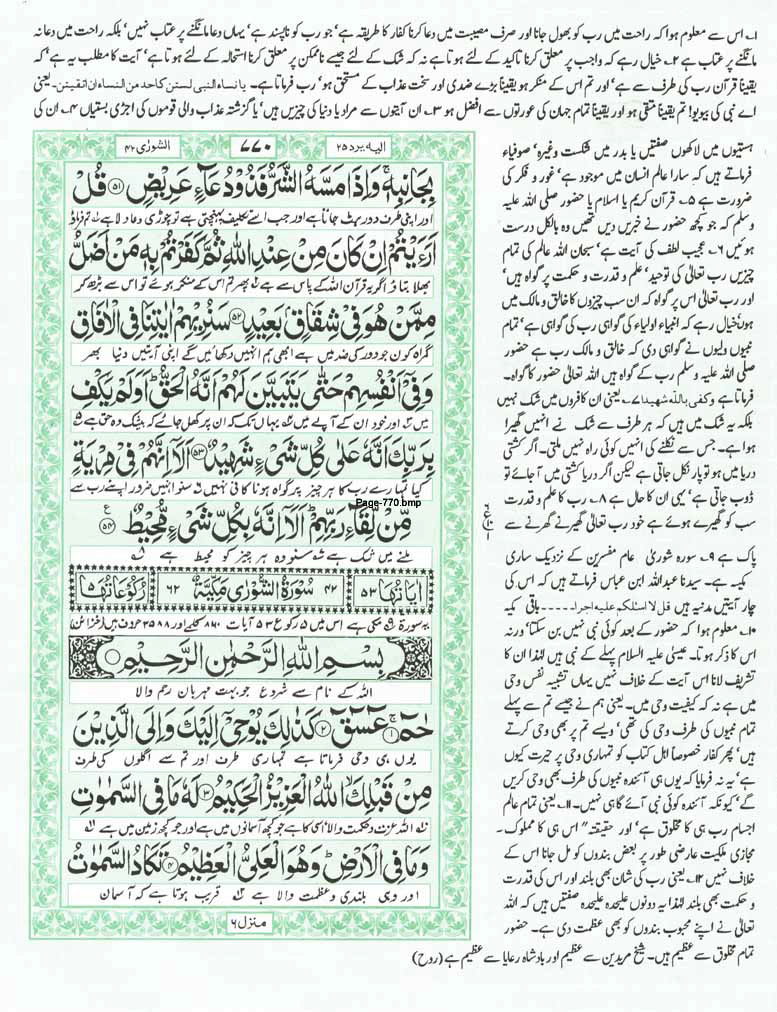 ۱۔ اس سے معلوم ہوا کہ راحت میں رب کو بھول جانا اور صرف مصیبت میں دعا کرنا کفار کا طریقہ ہے' جو رب کو ناپسند ہے' یہاں دعا مانگنے پر عتاب نہیں' بلکہ راحت میں دعا نہ
مانگنے پر عتاب ہے ۲۔ خیال رہے کہ واجب پر معلق کرنا تاکید کے لئے ہوتا ہے نہ کہ شک کے لئے جیسے ناممکن پر معلق کرنا استحالہ کے لئے ہوتا ہے' آیت کا مطلب یہ ہے' کہ
یقیناً قرآن رب کی طرف سے ہے' اور تم اس کے منکر ہو یقیناً بڑے ضدی اور سخت عذاب کے مستحق ہو' رب فرماتا ہے۔ یا نساء النبی لستن کاحد من النساء ان اتقیتن۔ یعنی
اے نبی کی بیویو! تم یقیناً متقی ہو اور یقیناً تمام جہان کی عورتوں سے افضل ہو ۳۔ ان آیتوں سے مراد یا دنیا کی چیزیں ہیں' یا گزشتہ عذاب والی قوموں کی اجڑی بستیاں ۴۔ ان کی
ہستیوں میں لاکھوں صفتیں یا بدر میں شکست وغیرہ' صوفیاء
فرماتے ہیں کہ سارا عالم انسان میں موجود ہے' غور و فکر کی
ضرورت ہے ۵۔ قرآن کریم یا اسلام یا حضور صلی اللہ علیہ
وسلم کہ جو کچھ حضور نے خبریں دیں تھیں وہ بالکل درست
ہوئیں ۶۔ عجیب لطف کی آیت ہے' سبحان اللہ عالم کی تمام
چیزیں رب تعالٰی کی توحید' علم و قدرت و حکمت پر گواہ ہیں'
اور رب تعالٰی اس پر گواہ کہ ان سب چیزوں کا خالق و مالک میں
ہوں خیال رہے کہ انبیاء اولیاء کی گواہی رب کی گواہی ہے' تمام
نبیوں ولیوں نے گواہی دی کہ خالق و مالک رب ہے حضور
صلی اللہ علیہ وسلم رب کے گواہ ہیں اللہ تعالٰی حضور کا گواہ۔
فرماتا ہے وکفی باللہ شہیدا ۷۔ یعنی ان کافروں میں شک نہیں
بلکہ یہ شک میں ہیں کہ ہر طرف سے شک نے انہیں گھیرا
ہوا ہے۔ جس سے نکلنے کی انہیں کوئی راہ نہیں ملتی۔ اگر کشتی
دریا میں ہو تو پار نکل جاتی ہے لیکن اگر دریا کشتی میں آ جائے تو
ڈوب جاتی ہے' یہی ان کا حال ہے ۸۔ رب کا علم و قدرت
سب کو گھیرے ہوئے ہے خود رب تعالٰی گھیرنے گھرنے سے
پاک ہے ۹۔ سورہ شوریٰ عام مفسرین کے نزدیک ساری
مکیہ ہے۔ سیدنا عبداللہ ابن عباس فرماتے ہیں کہ اس کی
چار آیتیں مدنیہ ہیں قل لا اسئلکم علیہ اجرا۔۔۔۔۔ باقی مکیہ
۱۰۔ معلوم ہوا کہ حضور کے بعد کوئی نبی نہیں بن سکتا' ورنہ
اس کا ذکر ہوتا۔ عیسیٰ علیہ السلام پہلے کے نبی ہیں لہٰذا ان کا
تشریف لانا اس آیت کے خلاف نہیں یہاں تشبیہ نفس وحی
میں ہے نہ کہ کیفیت وحی میں۔ یعنی ہم نے جیسے تم سے پہلے
تمام نبیوں کی طرف وحی کی تھی' ویسے تم پر بھی وحی کرتے
ہیں' پھر کفار خصوصاً اہل کتاب کو تمہاری وحی پر حیرت کیوں
ہے' یہ نہ فرمایا کہ یوں ہی آئندہ نبیوں کی طرف بھی وحی کریں
گے' کیونکہ آئندہ کوئی نبی آئے گا ہی نہیں۔ ۱۱۔ یعنی تمام عالم
اجسام رب ہی کا مخلوق ہے' اور حقیقتہ" اس ہی کا مملوک۔
مجازی ملکیت عارضی طور پر بعض بندوں کو مل جانا اس کے
خلاف نہیں ۱۲۔ یعنی رب کی شان بھی بلند اور اس کی قدرت
و حکمت بھی بلند لہٰذا یہ دونوں علیحدہ علیحدہ صفتیں ہیں کہ اللہ
تعالٰی نے اپنے محبوب بندوں کو بھی عظمت دی ہے۔ حضور
تمام مخلوق سے عظیم ہیں۔ شیخ مریدین سے عظیم اور بادشاہ رعایا سے عظیم ہے (روح)
الیہ یرد ۲۵
۷۷۰
الشوریٰ ۴۲
بِجَانِبِهٖ ۚ وَاِذَا مَسَّهُ الشَّرُّ فَذُوْ دُعَآءٍ عَرِيْضٍ ﴿۵۱﴾ قُلْ
اور اپنی طرف دور ہٹ جاتا ہے اور جب اسے تکلیف پہنچتی ہے تو چوڑی دعا والا ہے تم فرماؤ
اَرَءَيْتُمْ اِنْ كَانَ مِنْ عِنْدِ اللّٰهِ ثُمَّ كَفَرْتُمْ بِهٖ مَنْ اَضَلُّ
بھلا بتاؤ اگر یہ قرآن اللہ کے پاس سے ہے پھر تم اس کے منکر ہوئے تو اس سے بڑھ کر
مِمَّنْ هُوَ فِيْ شِقَاقٍۭ بَعِيْدٍ ﴿۵۲﴾ سَنُرِيْهِمْ اٰيٰتِنَا فِي الْاٰفَاقِ
گمراہ کون جو دور کی ضد میں ہے ابھی ہم انہیں دکھائیں گے اپنی آیتیں دنیا بھر
وَفِيْٓ اَنْفُسِهِمْ حَتّٰى يَتَبَيَّنَ لَهُمْ اَنَّهُ الْحَقُّ ؕ اَوَلَمْ يَكْفِ
میں اور خود ان کے آپے میں یہاں تک کہ ان پر کھل جائے کہ بیشک وہ حق ہے
بِرَبِّكَ اَنَّهٗ عَلٰى كُلِّ شَيْءٍ شَهِيْدٌ ﴿۵۳﴾ اَلَآ اِنَّهُمْ فِيْ مِرْيَةٍ
کیا تمہارے رب کا ہر چیز پر گواہ ہونا کافی نہیں سنو انہیں ضرور اپنے رب سے
Page-770.bmp
مِّنْ لِّقَآءِ رَبِّهِمْ ؕ اَلَآ اِنَّهٗ بِكُلِّ شَيْءٍ مُّحِيْطٌ ﴿۵۴﴾
ملنے میں شک ہے سنو وہ ہر چیز کو محیط ہے
اٰيَاتُهَا ۵۳ ۴۲ سُوْرَةُ الشُّوْرٰى مَكِّيَّةٌ ۶۲ رُكُوْعَاتُهَا ۵
یہ سورۃ مکی ہے اس میں ۵ رکوع ۵۳ آیات ۸۶۰ کلمے اور ۳۵۸۸ حروف ہیں (خزائن)
بِسْمِ اللّٰهِ الرَّحْمٰنِ الرَّحِيْمِ
اللہ کے نام سے شروع جو بہت مہربان رحم والا
حٰمٓ ﴿۱﴾ عٓسٓقٓ ﴿۲﴾ كَذٰلِكَ يُوْحِيْٓ اِلَيْكَ وَاِلَى الَّذِيْنَ
یوں ہی وحی فرماتا ہے تمہاری طرف اور تم سے اگلوں کی طرف
مِنْ قَبْلِكَ ۙ اللّٰهُ الْعَزِيْزُ الْحَكِيْمُ ﴿۳﴾ لَهٗ مَا فِي السَّمٰوٰتِ
اللہ عزت و حکمت والا اسی کا ہے جو کچھ آسمانوں میں ہے اور جو کچھ زمین میں ہے
وَمَا فِي الْاَرْضِ ؕ وَهُوَ الْعَلِيُّ الْعَظِيْمُ ﴿۴﴾ تَكَادُ السَّمٰوٰتُ
اور وہی بلندی و عظمت والا ہے قریب ہوتا ہے کہ آسمان
منزل ۶